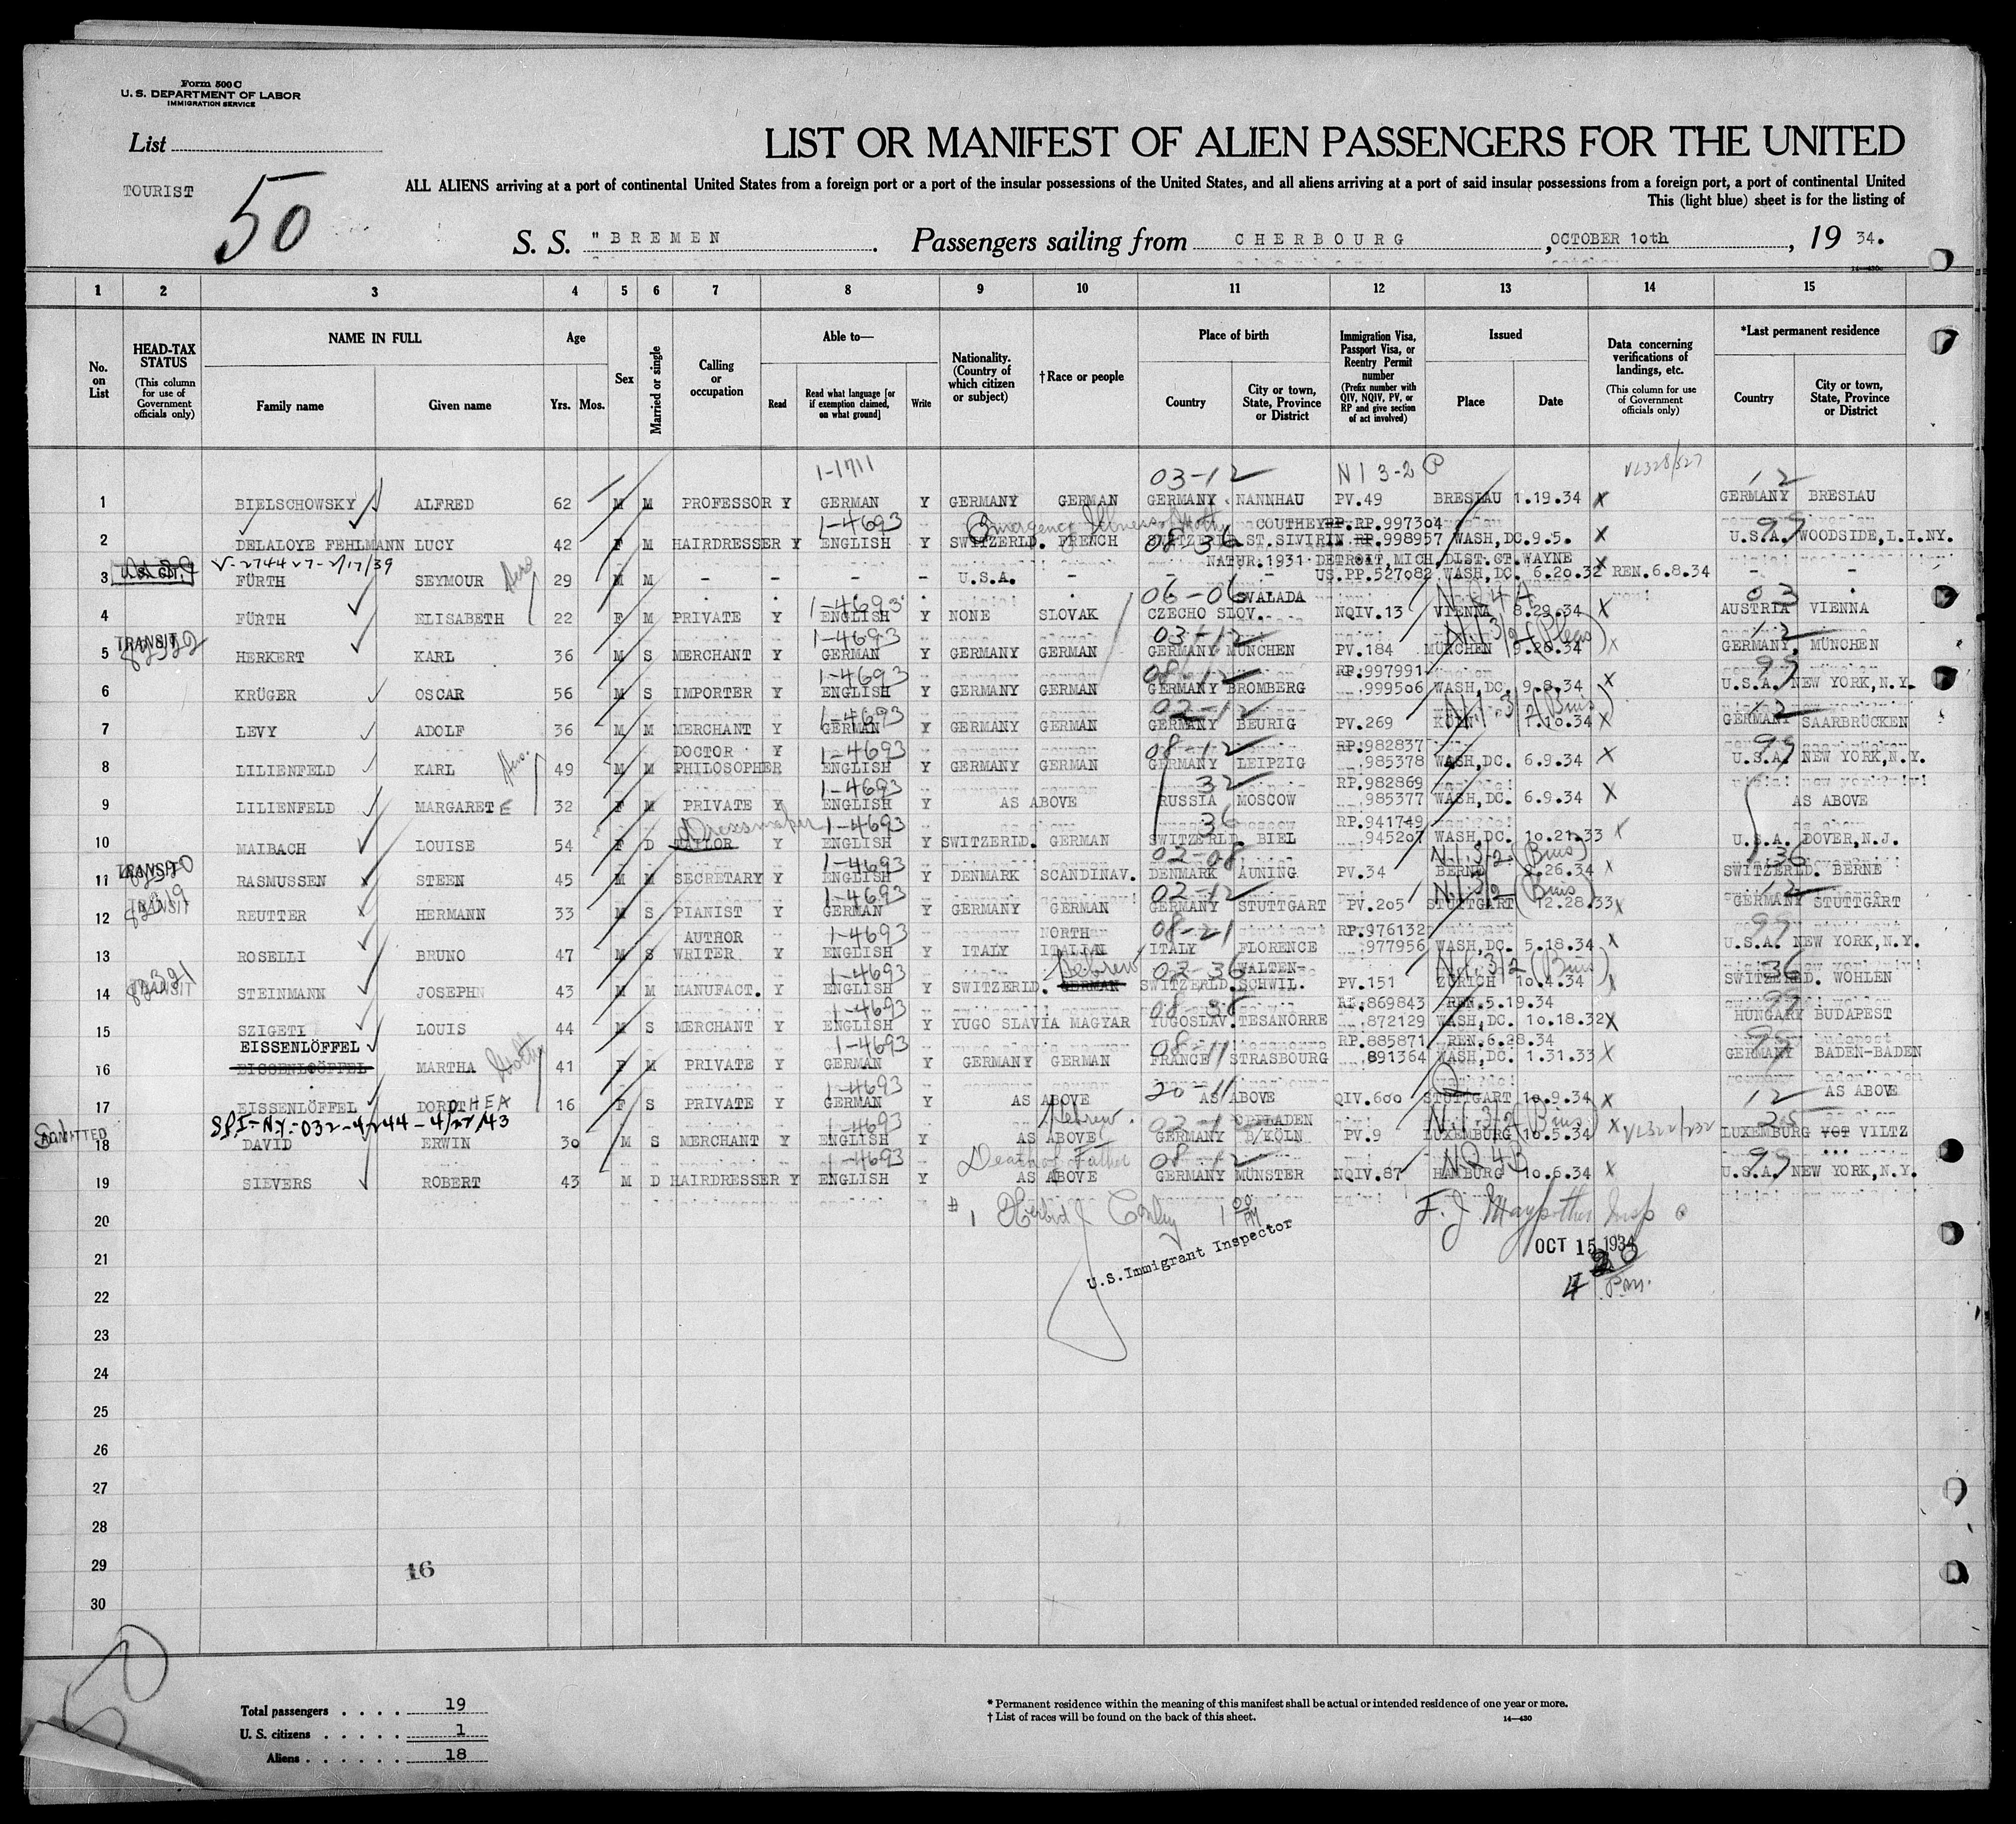 Form 500 C
U. S. DEPARTMENT OF LABOR
IMMIGRATION SERVICE
List
TOURIST
50
LIST OR MANIFEST OF ALIEN PASSENGERS FOR THE UNITED
ALL ALIENS arriving at a port of continental United States from a foreign port or a port of the insular possessions of the United States, and all aliens arriving at a port of said insular possessions from a foreign port, a port of continental United
This (light blue) sheet is for the listing of
S. S. "BREMEN . Passengers sailing from CHERBOURG , OCTOBER 10th , 19 34.
1 2 3 4 5 6 7 8 9 10 11 12 13 14 15
No. on List
HEAD-TAX STATUS (This column for use of Government officials only)
NAME IN FULL Family name Given name
Age Yrs. Mos.
Sex
Married or single
Calling or occupation
Able to— Read Read what language [or if exemption claimed, on what ground] Write
Nationality. (Country of which citizen or subject)
† Race or people
Place of birth Country City or town, State, Province or District
Immigration Visa, Passport Visa, or Reentry Permit number (Prefix number with QIV, NQIV, PV, or RP and give section of act involved)
Issued Place Date
Data concerning verifications of landings, etc. (This column for use of Government officials only)
*Last permanent residence Country City or town, State, Province or District
1-1711 03-12 N I 3-2 P VL328/527 12
1 BIELSCHOWSKY ALFRED 62 M M PROFESSOR Y GERMAN Y GERMANY GERMAN GERMANY NANNHAU PV.49 BRESLAU 1.19.34 X GERMANY BRESLAU
1-4693 Emergency Illness of Moth COUTHEY RP.RP.997304 99
2 DELALOYE FEHLMANN LUCY 42 F M HAIRDRESSER Y ENGLISH Y SWITZERLD. FRENCH SWITZERLD. ST.SIVIRIN RP.998957 WASH,DC.9.5. X U.S.A. WOODSIDE,L.I.NY.
08-36
V-274427-2/17/39 NATUR.1931 DETROIT,MICH,DIST.CT.WAYNE
3 FÜRTH SEYMOUR 29 M M - - - - U.S.A. - - - US.PP.527082 WASH,DC. 6.20.32 REN.6.8.34 - -
1-4693 06-06 WALADA NQ4A 03
4 FÜRTH ELISABETH 22 F M PRIVATE Y ENGLISH Y NONE SLOVAK CZECHO SLOV. NQIV.13 VIENNA 8.29.34 X AUSTRIA VIENNA
TRANSIT 82322 1-4693 03-12 N.I.3/2 (Pleas) 12
5 HERKERT KARL 36 M S MERCHANT Y GERMAN Y GERMANY GERMAN GERMANY MÜNCHEN PV.184 MÜNCHEN 9.20.34 X GERMANY, MÜNCHEN
1-4693 08-12 RP.997991 99
6 KRÜGER OSCAR 56 M S IMPORTER Y ENGLISH Y GERMANY GERMAN GERMANY BROMBERG .999506 WASH,DC. 9.8.34 X U.S.A. NEW YORK,N.Y.
1-4693 02-12 N.I.3/2 (Bus) 12
7 LEVY ADOLF 36 M M MERCHANT Y GERMAN Y GERMANY GERMAN GERMANY BEURIG PV.269 KÖLN 1.10.34 X GERMANY SAARBRÜCKEN
DOCTOR Y 1-4693 08-12 RP.982837 99
8 LILIENFELD KARL 49 M M PHILOSOPHER ENGLISH Y GERMANY GERMAN GERMANY LEIPZIG .985378 WASH,DC. 6.9.34 X U.S.A. NEW YORK,N.Y.
1-4693 32 RP.982869
9 LILIENFELD MARGARETE 32 F M PRIVATE Y ENGLISH Y AS ABOVE RUSSIA MOSCOW .985377 WASH,DC. 6.9.34 X AS ABOVE
Dressmaker 1-4693 36 RP.941749
10 MAIBACH LOUISE 54 F D TAILOR Y ENGLISH Y SWITZERLD. GERMAN SWITZERLD. BIEL .945207 WASH,DC. 10.21.33 X U.S.A. DOVER,N.J.
TRANSIT 1-4693 02-08 N.I.3/2 (Bus) 36
11 RASMUSSEN STEEN 45 M M SECRETARY Y ENGLISH Y DENMARK SCANDINAV. DENMARK AUNING PV.34 BERNE 9.26.34 X SWITZERLD. BERNE
82319 TRANSIT 1-4693 02-12 N.I.3/2 (Bus) 12
12 REUTTER HERMANN 33 M S PIANIST Y GERMAN Y GERMANY GERMAN GERMANY STUTTGART PV.205 STUTTGART 12.28.33 X GERMANY STUTTGART
AUTHOR 1-4693 NORTH 08-21 RP.976132 99
13 ROSELLI BRUNO 47 M S WRITER Y ENGLISH Y ITALY ITALIAN ITALY FLORENCE .977956 WASH,DC. 5.18.34 X U.S.A. NEW YORK,N.Y.
82321 TRANSIT 1-4693 Hebrew 02-36 WALTEN- N.I.3/2 (Bus) 36
14 STEINMANN JOSEPH 43 M M MANUFACT. Y ENGLISH Y SWITZERLD. GERMAN SWITZERLD. SCHWIL. PV.151 ZÜRICH 10.4.34 X SWITZERLD. WOHLEN
1-4693 08-38 RP.869843 REN.5.19.34 99
15 SZIGETI LOUIS 44 M S MERCHANT Y ENGLISH Y YUGO SLAVIA MAGYAR YUGOSLAV. TESANÖRRE .872129 WASH,DC. 10.18.32 X HUNGARY BUDAPEST
EISSENLÖFFEL 1-4693 08-11 RP.885871 REN.6.28.34 99
16 EISSENLÖÖFFEL MARTHA 41 F M PRIVATE Y GERMAN Y GERMANY GERMAN FRANCE STRASBOURG .891364 WASH,DC. 1.31.33 X GERMANY BADEN-BADEN
1-4693 20-11 Q
17 EISSENLÖFFEL DOROTHEA 16 F S PRIVATE Y GERMAN Y AS ABOVE AS ABOVE QIV.600 STUTTGART 10.9.34 X 12 AS ABOVE
SPI-N.Y.-032-4244-4/27/43 1-4693 Hebrew. 02-12 OPLADEN N.I.3/2 (Bus) 25
ADMITTED 18 DAVID ERWIN 30 M S MERCHANT Y ENGLISH Y AS ABOVE GERMANY B/KÖLN PV.9 LUXEMBURG 10.5.34 X VL322/232 LUXEMBURG VOT VILTZ
1-4693 Death of Father 08-12 NQ4B 99
19 SIEVERS ROBERT 43 M D HAIRDRESSER Y ENGLISH Y AS ABOVE GERMANY MÜNSTER NQIV.87 HAMBURG 10.6.34 X U.S.A. NEW YORK,N.Y.
20
U.S. Immigrant Inspector
OCT 15 1934
21
22
23
24
25
26
27
28
29 16
30
50
Total passengers . . . . 19
U. S. citizens . . . . . 1
Aliens . . . . . . 18
* Permanent residence within the meaning of this manifest shall be actual or intended residence of one year or more.
† List of races will be found on the back of this sheet. 14—430